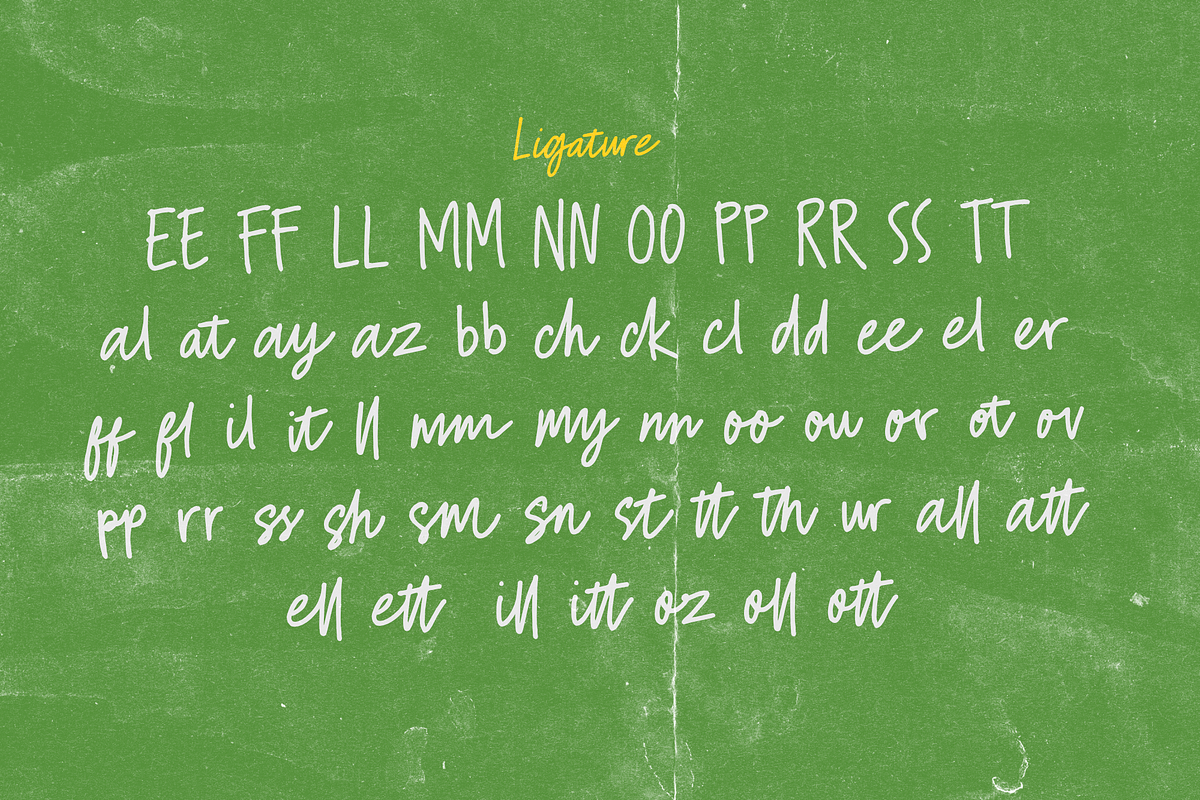 Ligature
EE FF LL MM NN OO PP RR SS TT
al at ay az bb ch ck cl dd ee el er
ff fl il it ll mm my nn oo ou or ot ov
pp rr ss sh sm sn st tt th ur all att
ell ett ill itt oz oll ott